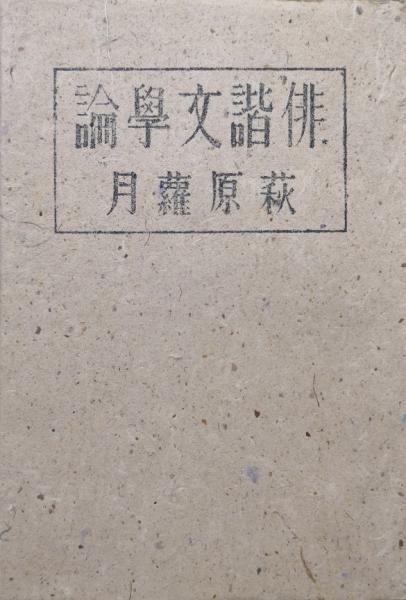 俳諧文學論
萩原蘿月